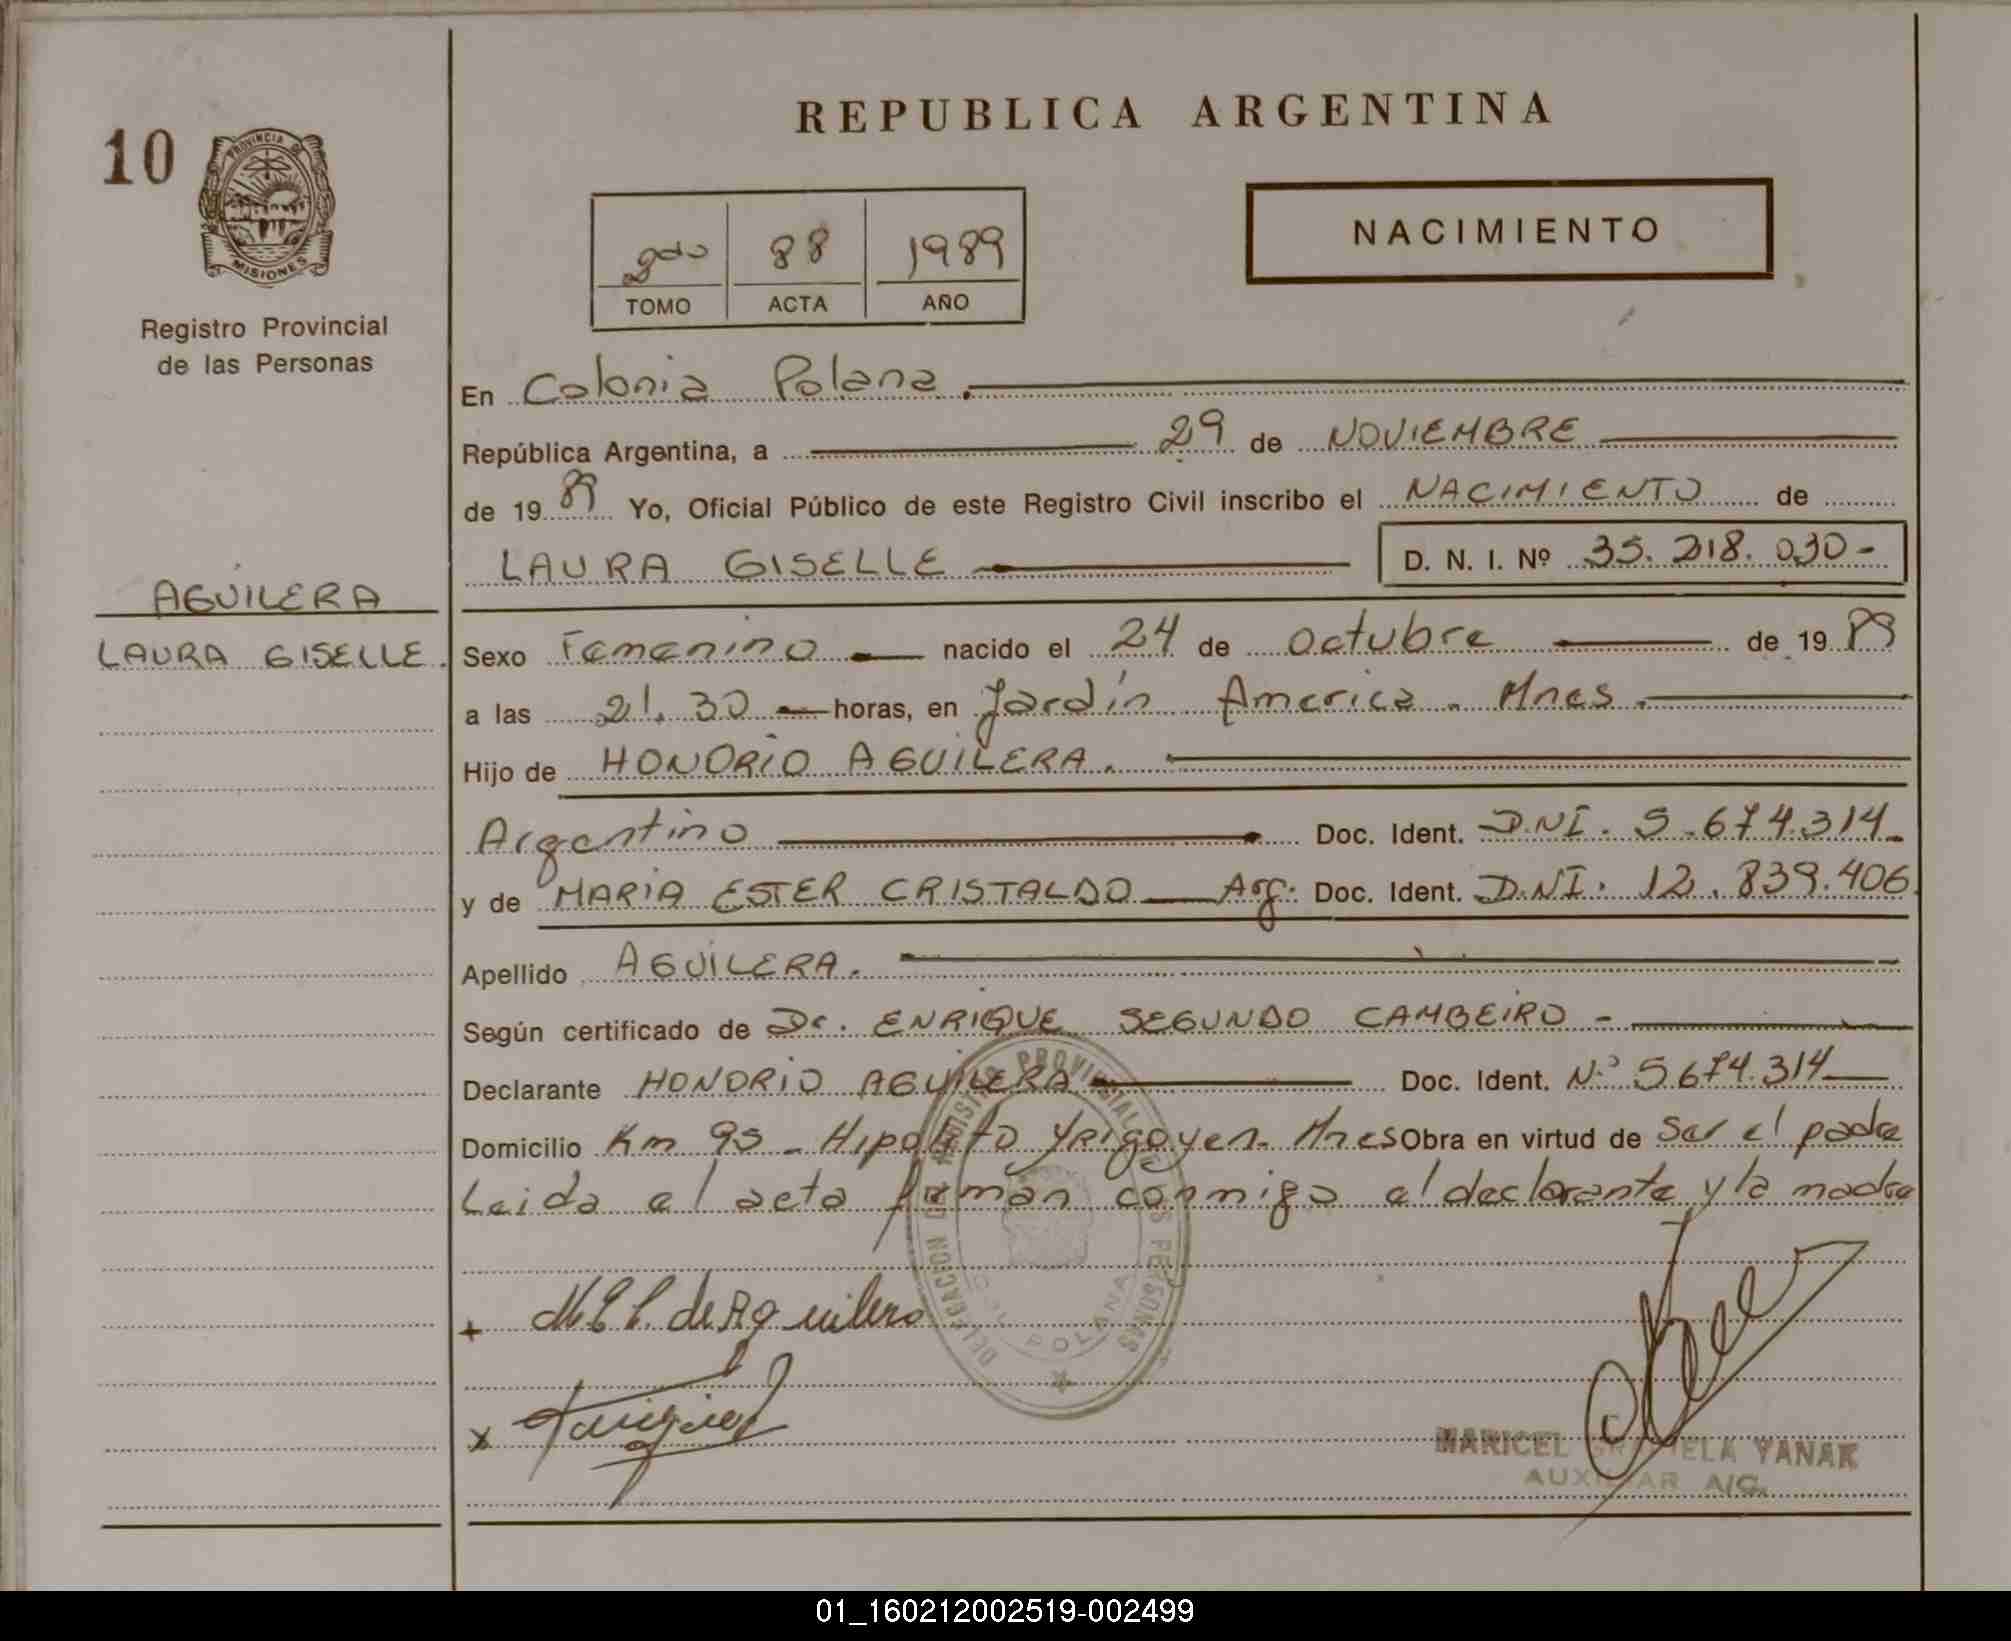 REPUBLICA ARGENTINA
10
PROVINCIA DE
MISIONES
Registro Provincial
de las Personas
2do 88 1989
TOMO ACTA AÑO
NACIMIENTO
En Colonia Polana.
República Argentina, a 29 de NOVIEMBRE
de 1989 Yo, Oficial Público de este Registro Civil inscribo el NACIMIENTO de
LAURA GISELLE D. N. I. Nº 35.218.030-
AGUILERA
LAURA GISELLE.
Sexo Femenino nacido el 24 de octubre de 1989
a las 21.30 horas, en Jardín America. Mnes.
Hijo de HONORIO AGUILERA.
Argentino Doc. Ident. D.NI. 5.674.314-
y de MARIA ESTER CRISTALDO Arg. Doc. Ident. D.NI. 12.839.406.
Apellido AGUILERA.
Según certificado de Dr. ENRIQUE SEGUNDO CAMBEIRO -
Declarante HONORIO AGUILERA Doc. Ident. Nº 5674.314
Domicilio Km 95 - Hipolito Yrigoyen - Mnes Obra en virtud de ser el padre
Leida el acta firman conmigo el declarante y la madre
+ M.E.C. de Aguilera
x
DELEGACION DEL REGISTRO PROVINCIAL DE LAS PERSONAS
COL. POLANA
MARICEL GRACIELA YANAK
AUXILIAR A/C.
01_160212002519-002499